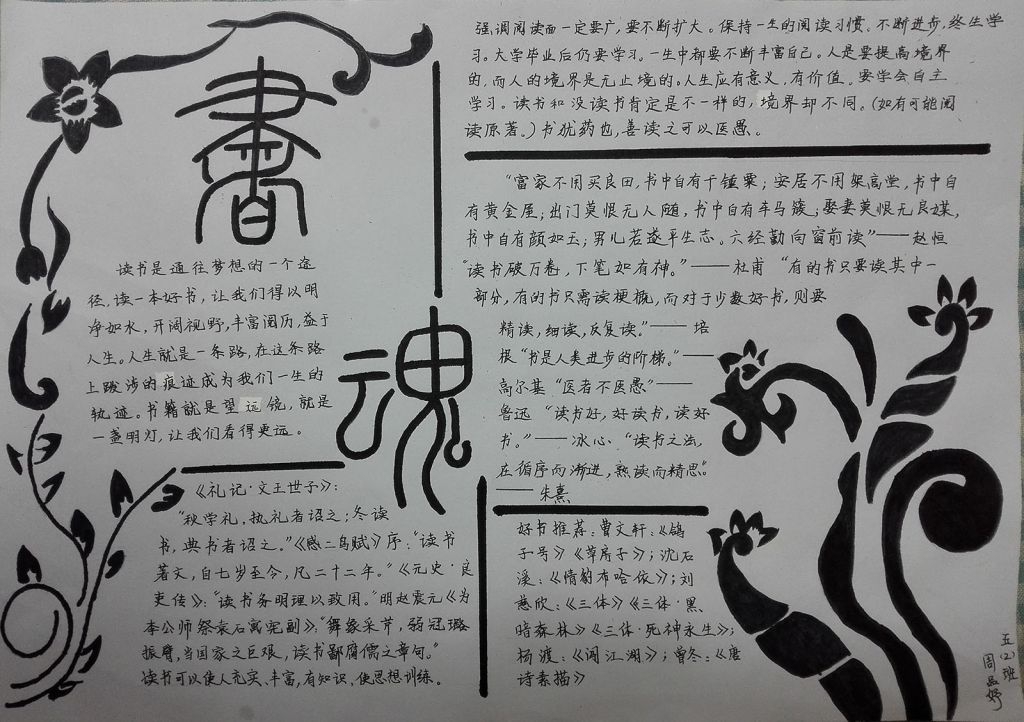 書
魂
读书是通往梦想的一个途
径,读一本好书,让我们得以明
净如水,开阔视野,丰富阅历,益于
人生。人生就是一条路,在这条路
上跋涉的痕迹成为我们一生的
轨迹。书籍就是望远镜,就是
一盏明灯,让我们看得更远。
《礼记·文王世子》:
“秋学礼,执礼者诏之;冬读
书,典书者诏之。”《感二鸟赋》序:“读书
著文,自七岁至今,凡二十二年。”《元史·良
吏传》:“读书务明理以致用。”明赵震元《为
本公师祭袁石寓宪副》:“舞象采芹,弱冠璐
振膺,当国家之巨艰,读书鄙腐儒之章句。”
读书可以使人充实、丰富,有知识,使思想训练。
强调阅读面一定要广,要不断扩大。保持一生的阅读习惯。不断进步,终生学
习。大学毕业后仍要学习。一生中都要不断丰富自己。人是要提高境界
的,而人的境界是无止境的。人生应有意义,有价值。要学会自主
学习。读书和没读书肯定是不一样的,境界却不同。(如有可能阅
读原著。)书犹药也,善读之可以医愚。
“富家不用买良田,书中自有千锺粟;安居不用架高堂,书中自
有黄金屋;出门莫恨无人随,书中自有车马簇;娶妻莫恨无良媒,
书中自有颜如玉;男儿若遂平生志。六经勤向窗前读”——赵恒
“读书破万卷,下笔如有神。”——杜甫 “有的书只要读其中一
部分,有的书只需读梗概,而对于少数好书,则要
精读,细读,反复读。”——培
根“书是人类进步的阶梯。”——
高尔基“医者不医愚”——
鲁迅 “读书好,好读书,读好
书。”——冰心、“读书之法,
在循序而渐进,熟读而精思。”
——朱熹
好书推荐:曹文轩:《鸽
子号》《草房子》;沈石
溪:《情豹布哈依》;刘
慈欣:《三体》《三体·黑
暗森林》《三体·死神永生》;
杨渡:《闯江湖》;曾冬:《唐
诗素描》
五(2)班
周品妤